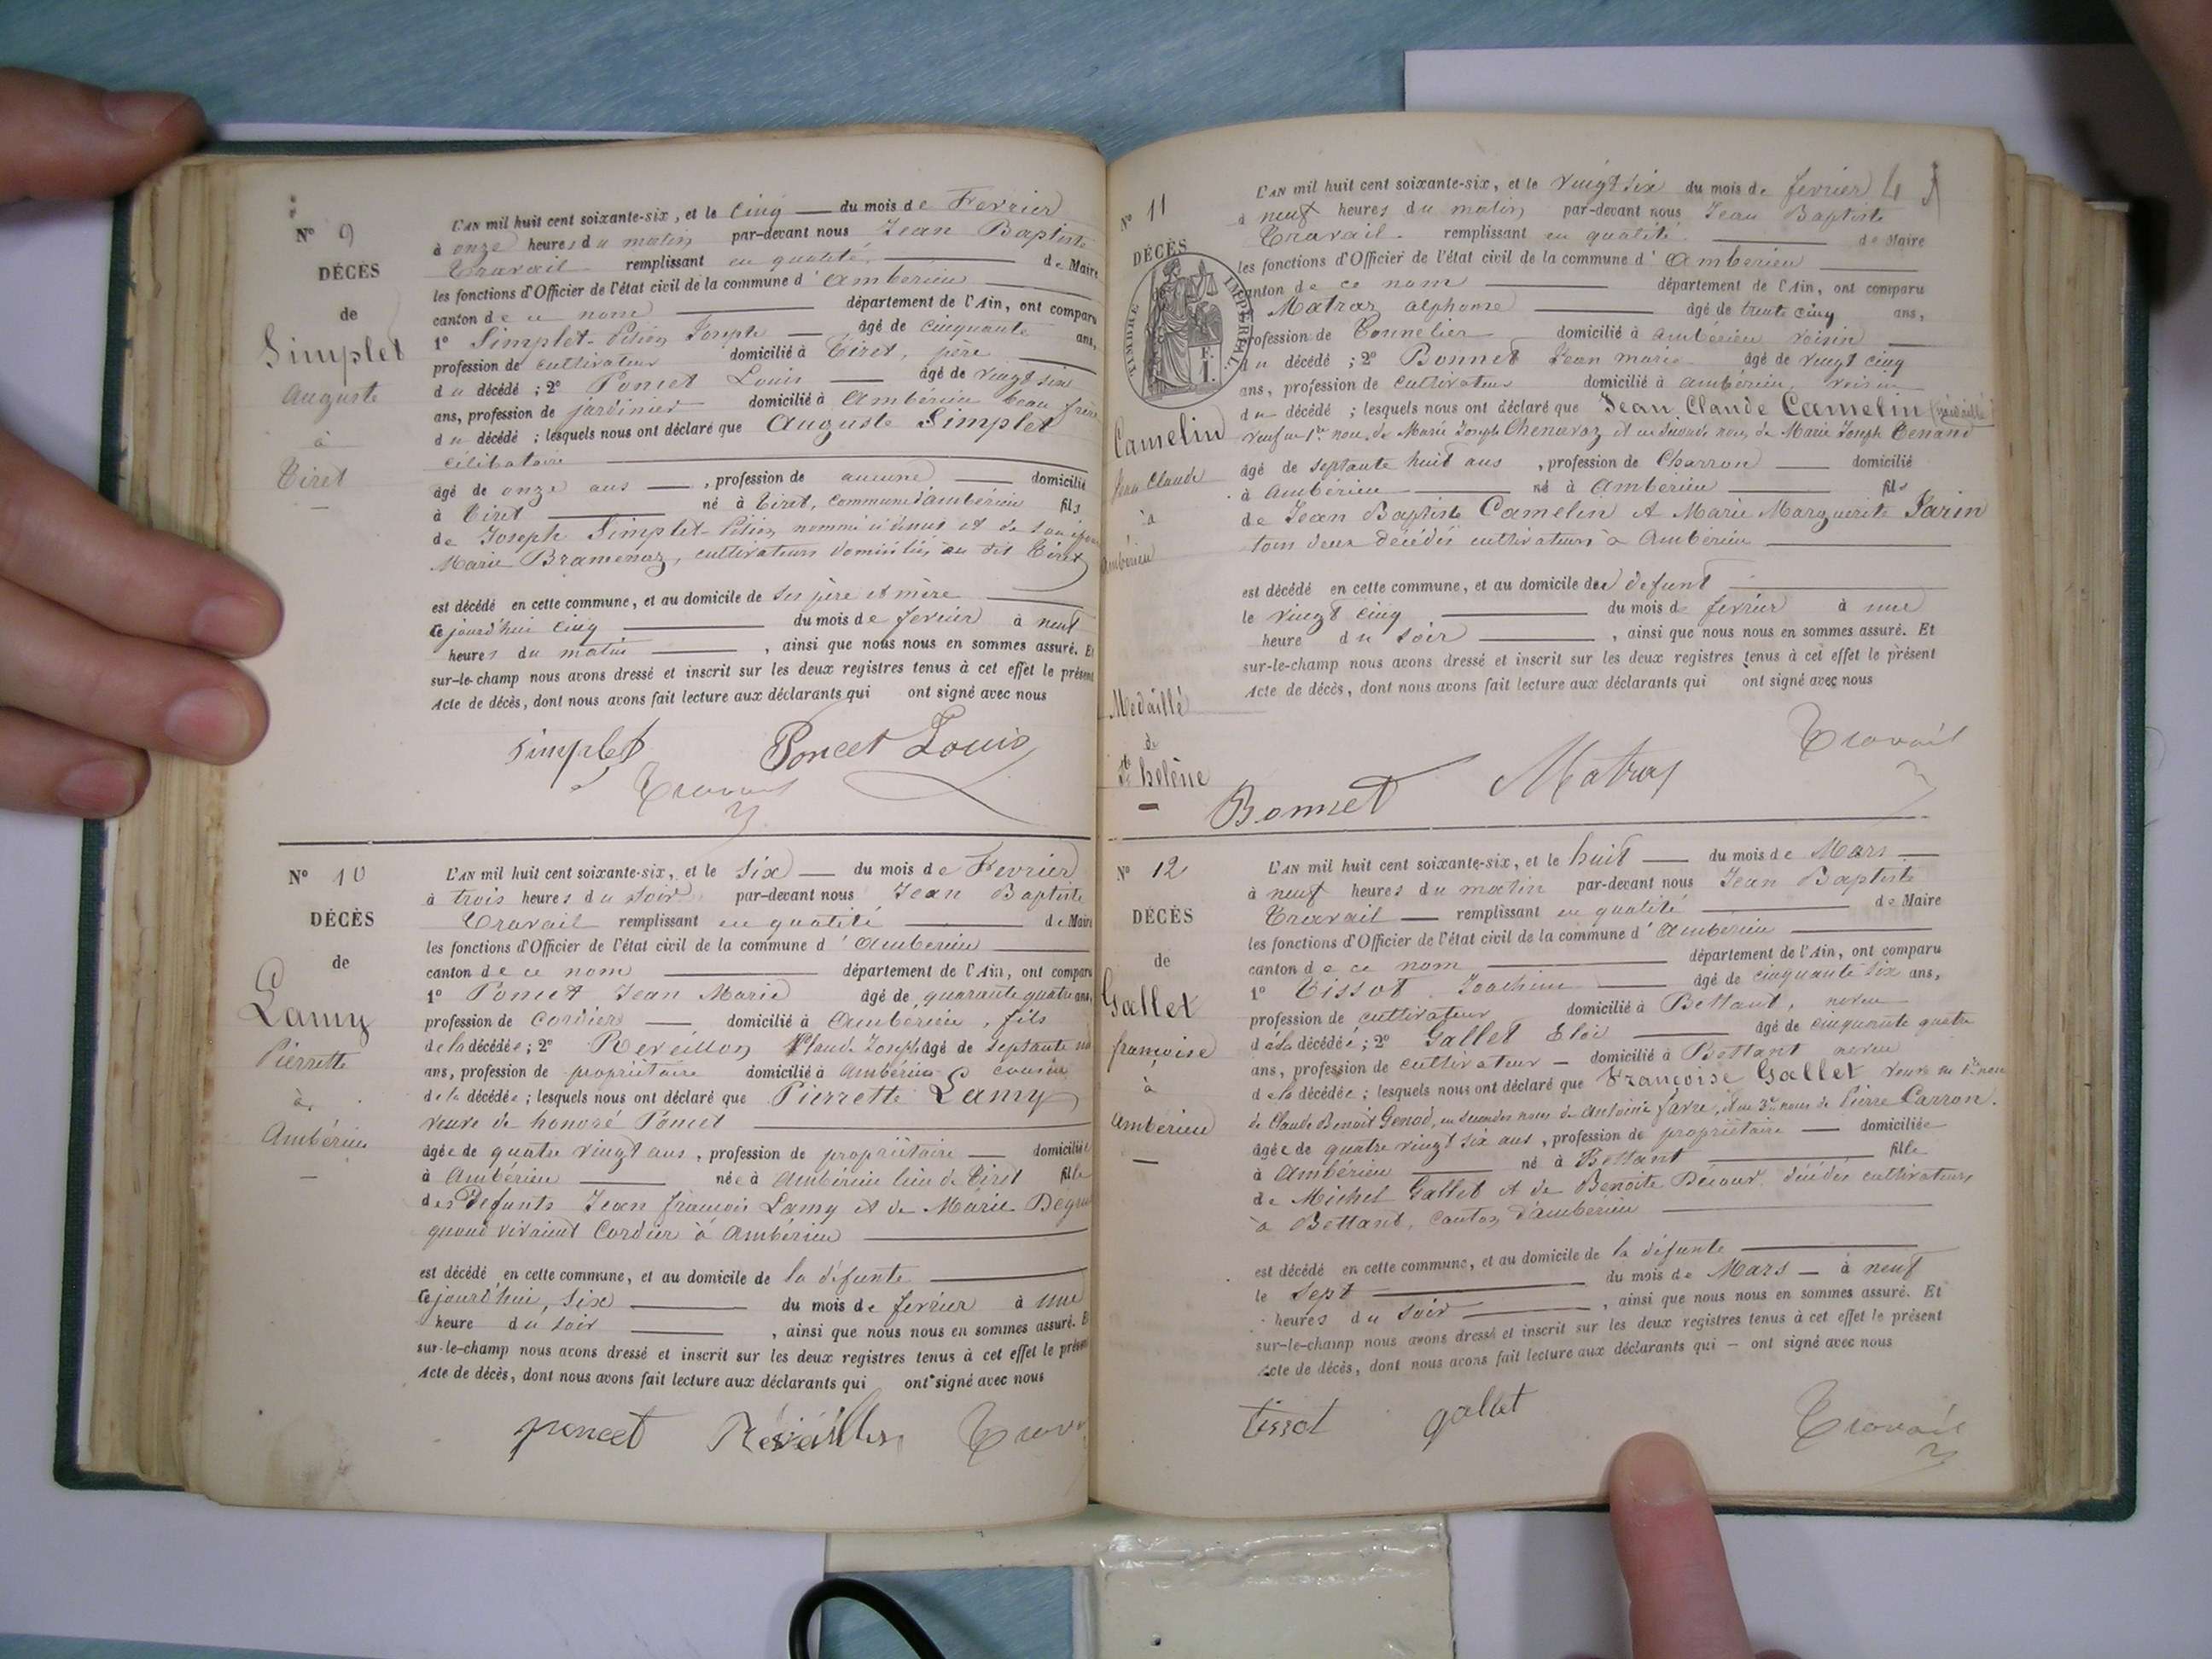 N° 9
DÉCÈS
de
Simplet
Auguste
à
Tiret
L'AN mil huit cent soixante-six, et le cinq du mois de Fevrier
à onze heures du matin par-devant nous Jean Baptiste
Travail remplissant en qualité de Maire
les fonctions d'Officier de l'état civil de la commune d'Ambérieu
canton de ce nom département de l'Ain, ont comparu
1° Simplet- Joseph âgé de cinquante ans,
profession de cultivateur domicilié à Tiret, père
du décédé ; 2° Poncet Louis âgé de vingt six
ans, profession de jardinier domicilié à Ambérieu beau frère
du décédé ; lesquels nous ont déclaré que Auguste Simplet
célibataire
âgé de onze ans, profession de aucune domicilié
à Tiret né à Tiret, commune d'ambérieu fils
de Joseph Simplet- et de
Marie Bramenoz, cultivateurs domiciliés au dit Tiret
est décédé en cette commune, et au domicile de ses père et mère
Cejourd'hui cinq du mois de fevrier à neuf
heures du matin, ainsi que nous nous en sommes assuré. Et
sur-le-champ nous avons dressé et inscrit sur les deux registres tenus à cet effet le présent
Acte de décès, dont nous avons fait lecture aux déclarants qui ont signé avec nous
Simplet Poncet Louis
Travail
N° 10
DÉCÈS
de
Lamy
Pierrette
à
Ambérieu
L'AN mil huit cent soixante-six, et le six du mois de Fevrier
à trois heures du soir par-devant nous Jean Baptiste
Travail remplissant en qualité de Maire
les fonctions d'Officier de l'état civil de la commune d'Ambérieu
canton de ce nom département de l'Ain, ont comparu
1° Poncet Jean Marie âgé de quarante quatre ans,
profession de cordier domicilié à Ambérieu, fils
de la décédée ; 2° Reveillon Claude Joseph âgé de septante
ans, profession de propriétaire domicilié à Ambérieu cousin
de la décédée ; lesquels nous ont déclaré que Pierrette Lamy
veuve de honoré Poncet
âgée de quatre vingt ans, profession de propriétaire domiciliée
à Ambérieu née à Ambérieu lieu de Tiret fille
des Defunts Jean françois Lamy et de Marie
quand vivaient Cordier à Ambérieu
est décédé en cette commune, et au domicile de la défunte
Cejourd'hui, six du mois de fevrier à une
heure du soir, ainsi que nous nous en sommes assuré. E
sur-le-champ nous avons dressé et inscrit sur les deux registres tenus à cet effet le présent
Acte de décès, dont nous avons fait lecture aux déclarants qui ont signé avec nous
poncet Réveillon Trava
N° 11
DÉCÈS
TIMBRE IMPERIAL
Camelin
Jean Claude
à
Ambérieu
Médaillé
de
Ste hélène
L'AN mil huit cent soixante-six, et le vingt six du mois de fevrier 4
à neuf heures du matin par-devant nous Jean Baptiste
Travail. remplissant en qualité de Maire
les fonctions d'Officier de l'état civil de la commune d'Ambérieu
canton de ce nom département de l'Ain, ont comparu
Matraz alphonse âgé de trente cinq ans,
profession de Tonnelier domicilié à ambérieu voisin
du décédé ; 2° Bonnet Jean marie âgé de vingt cinq
ans, profession de cultivateur domicilié à ambérieu, voisin
du décédé ; lesquels nous ont déclaré que Jean Claude Camelin (médaillé)
veuf en 1res noces de Marie Joseph Chenavaz et en seconde noces de Marie Joseph Tenand
âgé de septante huit ans, profession de Charron domicilié
à Ambérieu né à Ambérieu fils
de Jean Baptiste Camelin et Marie Marguerite Jarin
tous deux décédés cultivateurs à Ambérieu
est décédé en cette commune, et au domicile du defunt
le vingt cinq du mois de fevrier à une
heure du soir, ainsi que nous nous en sommes assuré. Et
sur-le-champ nous avons dressé et inscrit sur les deux registres tenus à cet effet le présent
Acte de décès, dont nous avons fait lecture aux déclarants qui ont signé avec nous
Travail
Bonnet Matraz
N° 12
DÉCÈS
de
Gallet
françoise
à
Ambérieu
L'AN mil huit cent soixante-six, et le huit du mois de Mars
à neuf heures du matin par-devant nous Jean Baptiste
Travail remplissant en qualité de Maire
les fonctions d'Officier de l'état civil de la commune d'Ambérieu
canton de ce nom département de l'Ain, ont comparu
1° Tissot Joachim âgé de cinquante six ans,
profession de cultivateur domicilié à Bettant, neveu
de la décédée ; 2° Gallet Eloi âgé de cinquante quatre
ans, profession de cultivateur domicilié à Bettant neveu
de la décédée ; lesquels nous ont déclaré que Françoise Gallet veuve en 1res noces
de Claude Benoit Genod, en secondes noces de Antoine favre, et en 3es noces de Pierre Carron.
âgée de quatre vingt six ans, profession de propriétaire domiciliée
à Ambérieu né à Bettant fille
de Michel Gallet et de Benoite décédés cultivateurs
à Bettant, canton d'ambérieu
est décédé en cette commune, et au domicile de la défunte
le sept du mois de Mars à neuf
heures du soir, ainsi que nous nous en sommes assuré. Et
sur-le-champ nous avons dressé et inscrit sur les deux registres tenus à cet effet le présent
Acte de décès, dont nous avons fait lecture aux déclarants qui ont signé avec nous
tissot gallet Travail